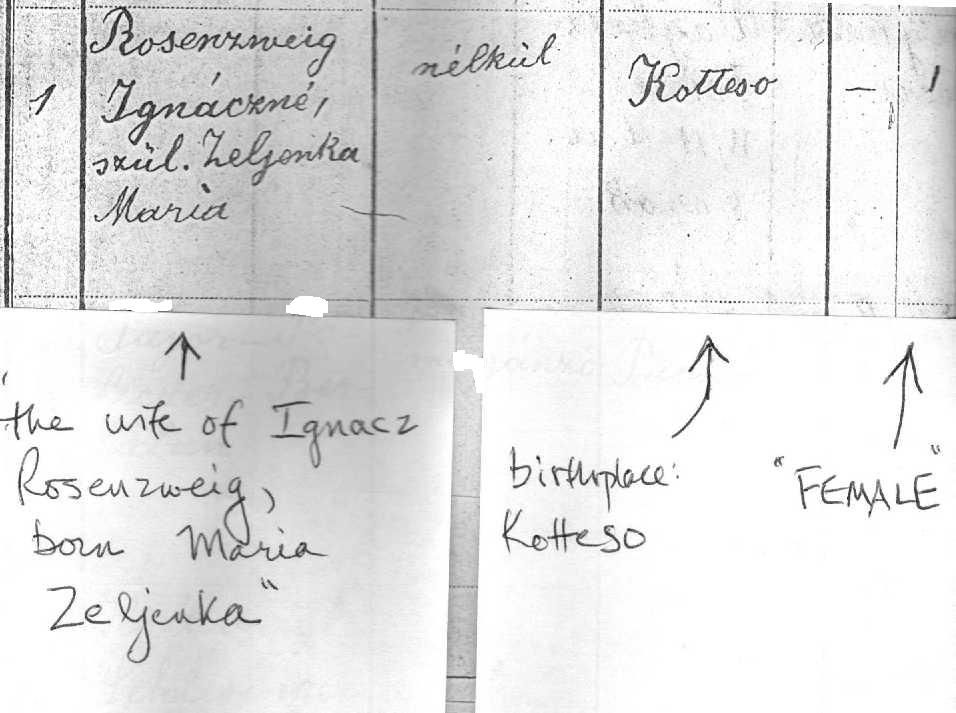 1
Rosenzweig
Ignáczné,
szül. Zeljenka
Maria
nélkül
Kotteso
— 1
"the wife of Ignacz
Rosenzweig,
born Maria
Zeljenka"
birthplace:
Kotteso
"FEMALE"